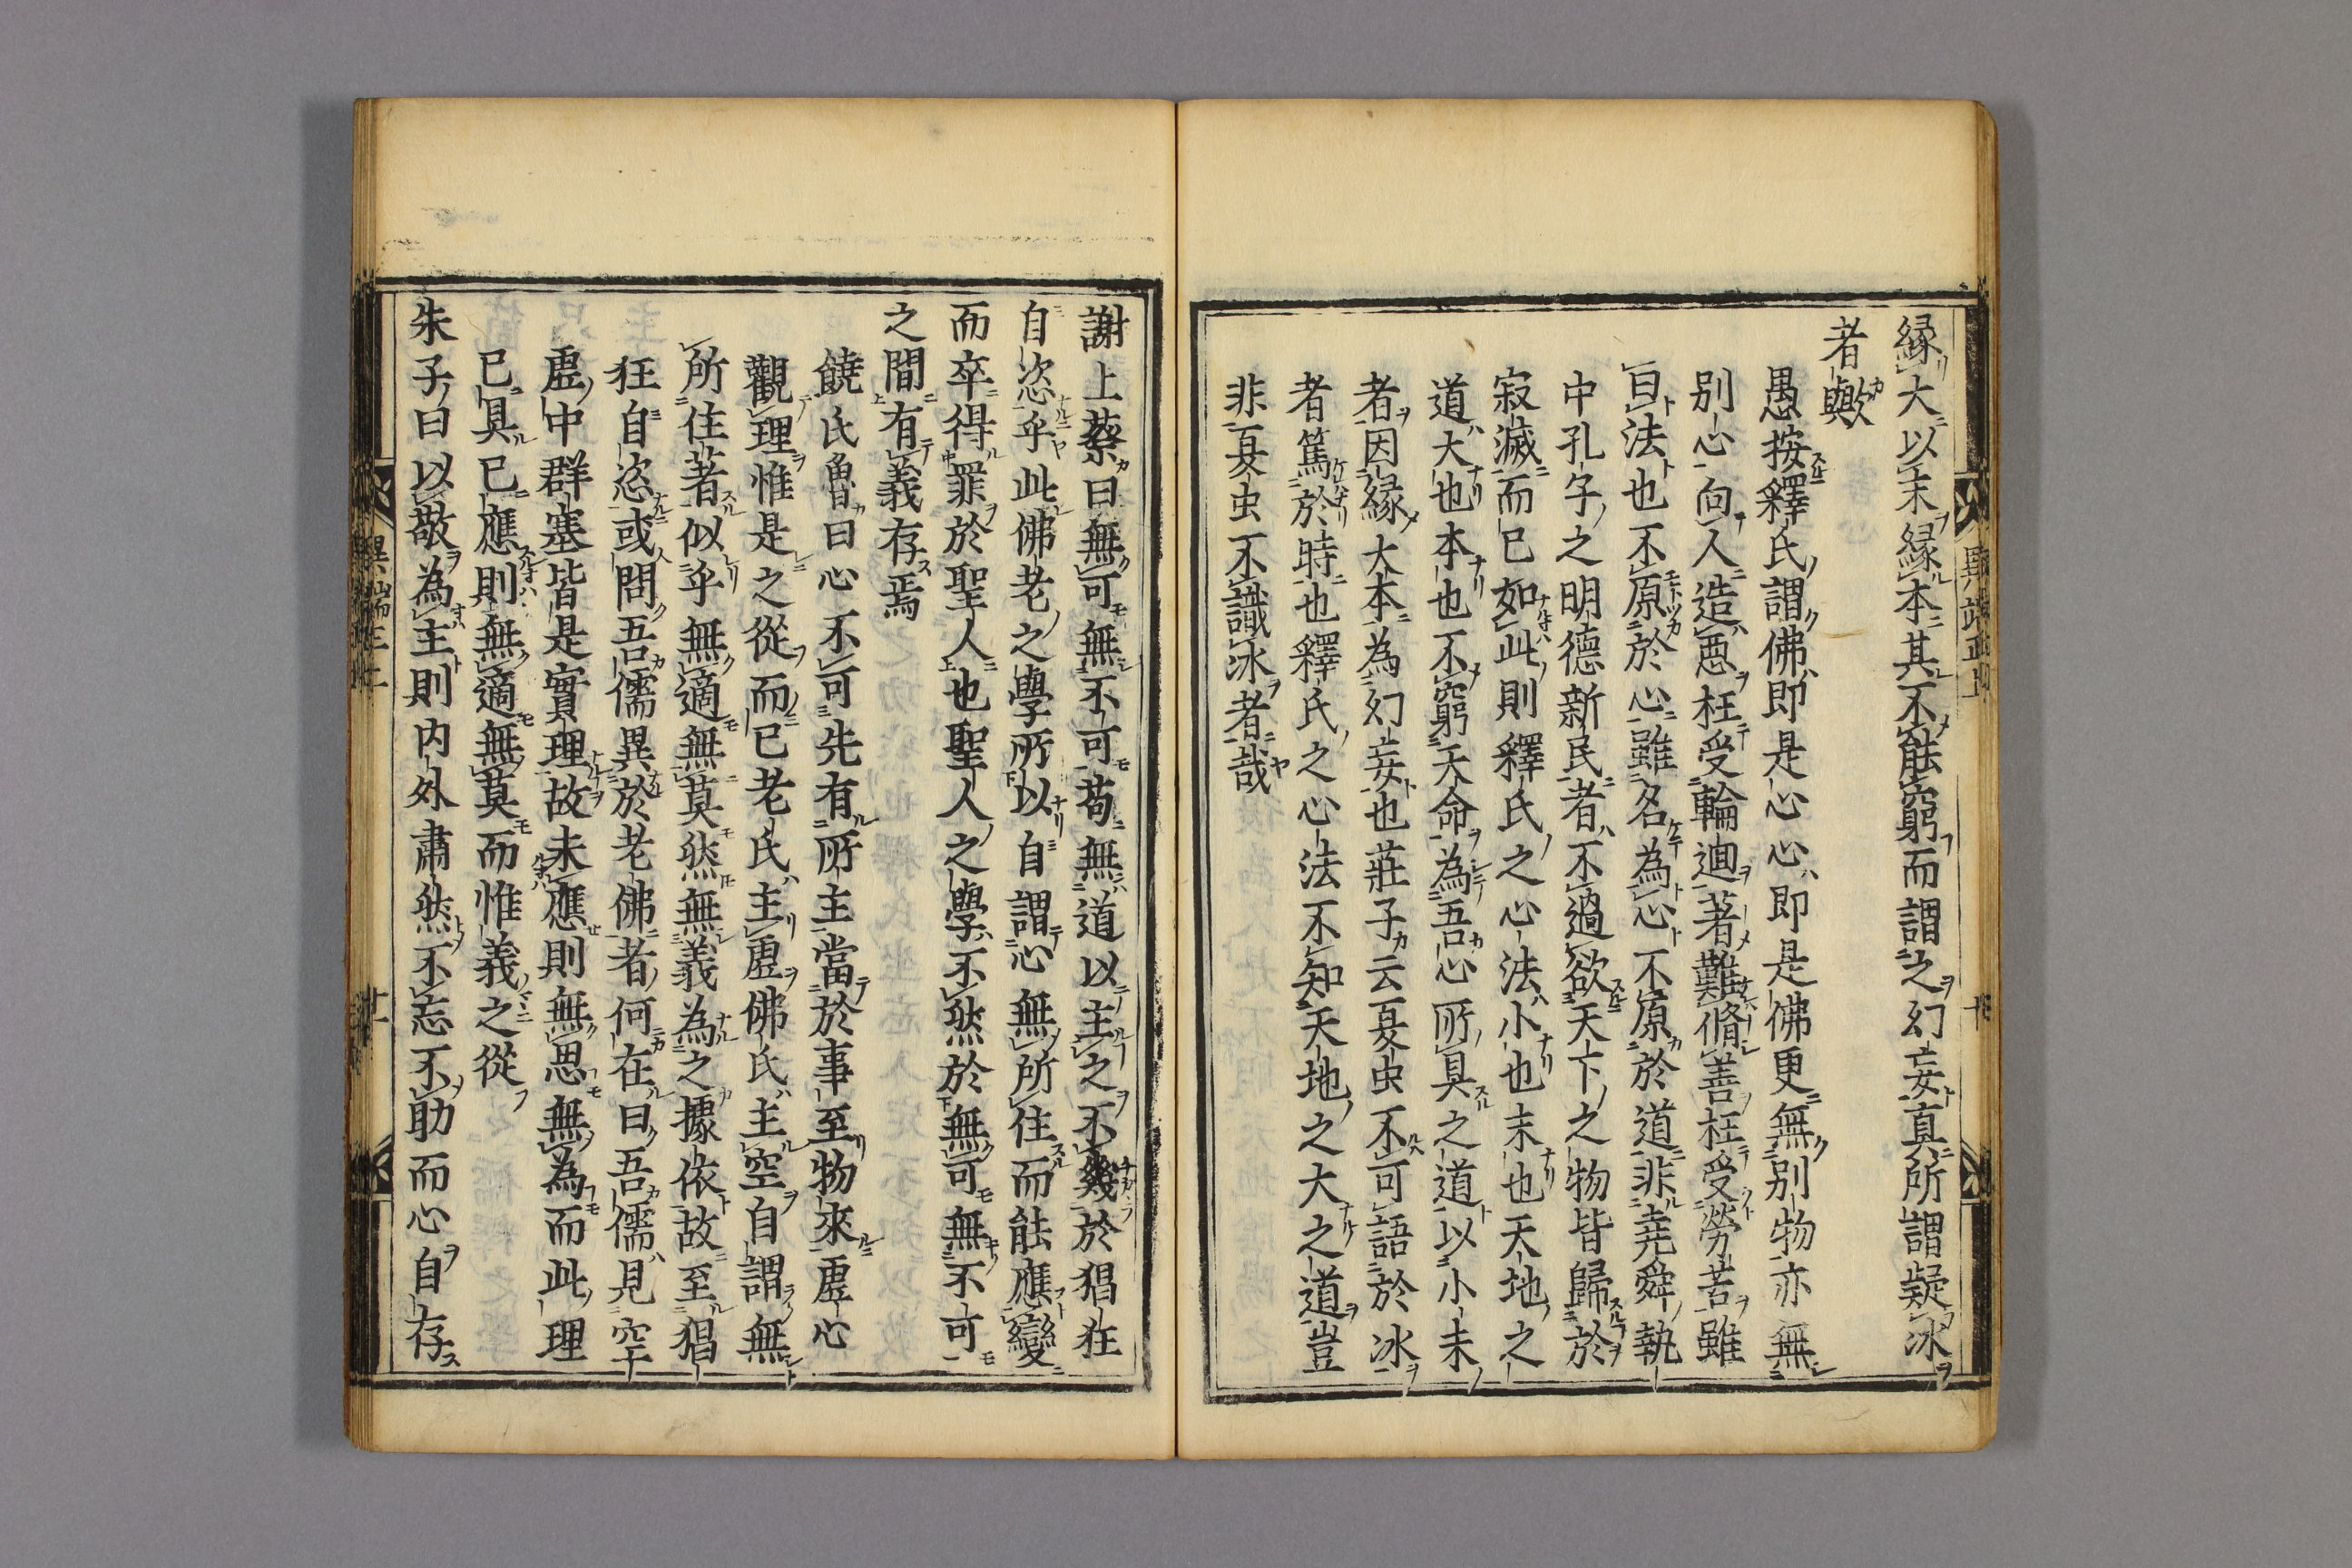 縁大以末縁本其不能窮而謂之幻妄真所謂疑冰
者歟
愚按釋氏謂佛即是心心即是佛更無別物亦無
別心向人造悪枉受輪廻著難脩善枉受勞苦雖
曰法也不原於心雖名為心不原於道非堯舜執
中孔子之明德新民者不過欲天下之物皆歸於
寂滅而已如此則釋氏之心法小也末也天地之
道大也本也不窮天命為吾心所具之道以小末
者因縁大本為幻妄也莊子云夏虫不可語於冰
者篤於時也釋氏之心法不知天地之大之道豈
非夏虫不識冰者哉
謝上蔡曰無可無不可苟無道以主之不幾於猖狂
自恣乎此佛老之學所以自謂心無所住而能應變
而卒得罪於聖人也聖人之學不然於無可無不可
之間有義存焉
饒氏魯曰心不可先有所主當於事至物來虛心
觀理惟是之從而已老氏主虛佛氏主空自謂無
所住著似乎無適無莫然無義為之據依故至猖
狂自恣或問吾儒異於老佛者何在曰吾儒見空
虛中群塞皆是實理故未應則無思無為而此理
已具已應則無適無莫而惟義之從
朱子曰以敬為主則内外肅然不忘不助而心自存